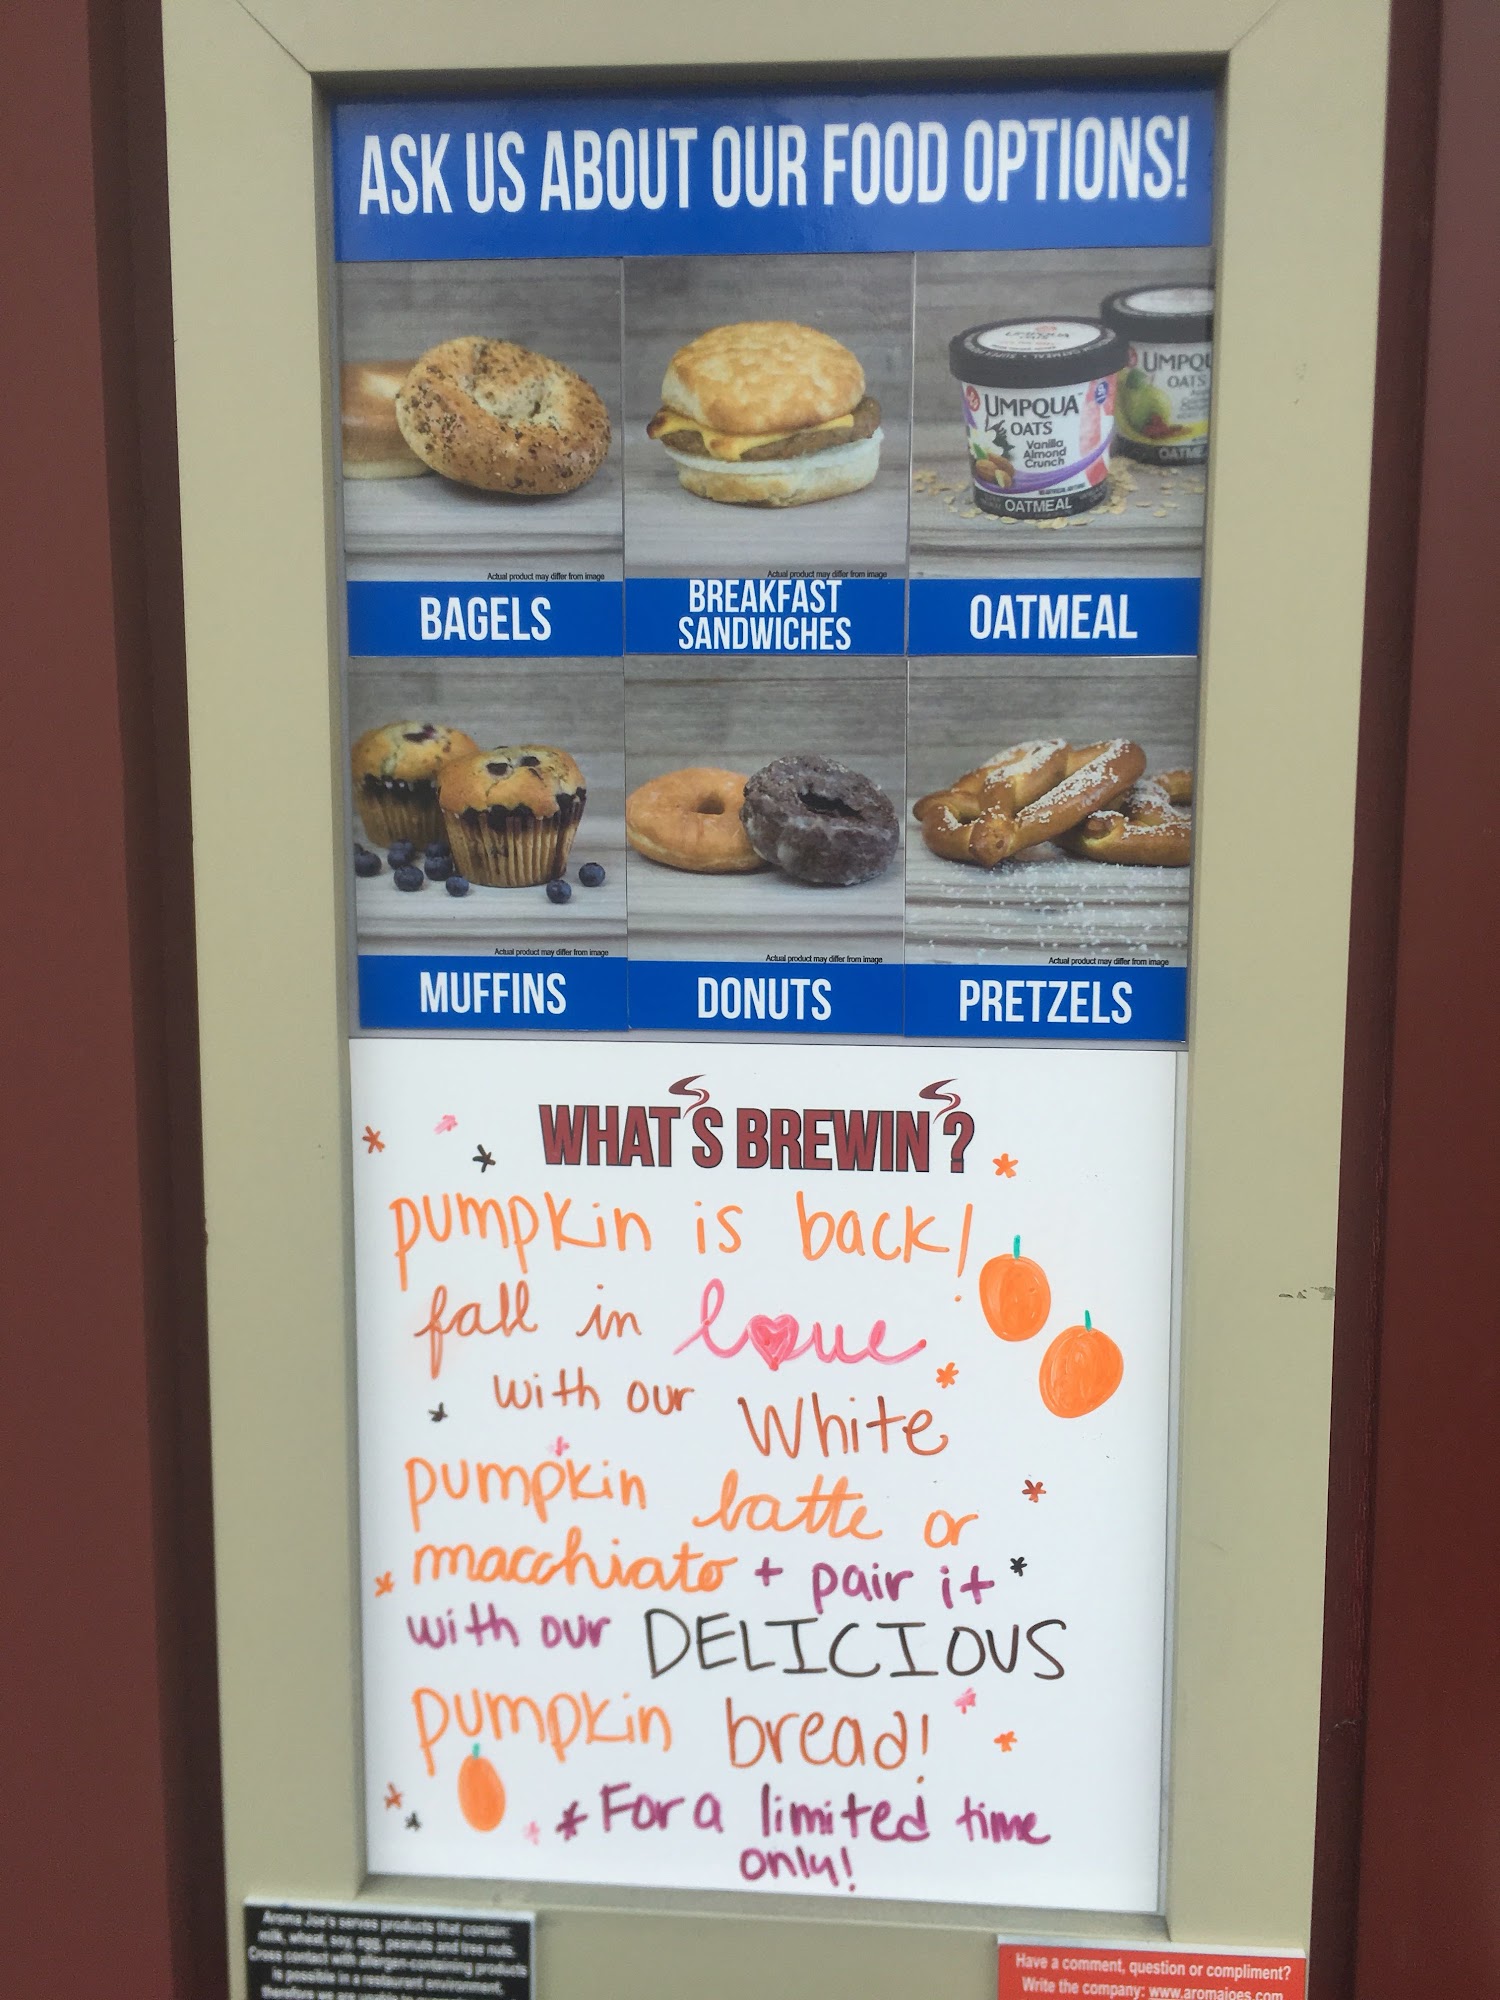 ASK US ABOUT OUR FOOD OPTIONS!
UMPQUA
OATS
Vanilla
Almond
Crunch
OATMEAL
UMPQU
OATS
OATME
Actual product may differ from image
Actual product may differ from image
BAGELS
BREAKFAST
SANDWICHES
OATMEAL
Actual product may differ from image
Actual product may differ from image
Actual product may differ from image
MUFFINS
DONUTS
PRETZELS
WHAT'S BREWIN'?
pumpkin is back!
fall in love
with our White
pumpkin latte or
macchiato + pair it
with our DELICIOUS
pumpkin bread!
* For a limited time
only!
Aroma Joe's serves products that contain:
milk, wheat, soy, egg, peanuts and tree nuts.
Cross contact with allergen-containing products
is possible in a restaurant environment,
Have a comment, question or compliment?
Write the company: www.aromajoes.com